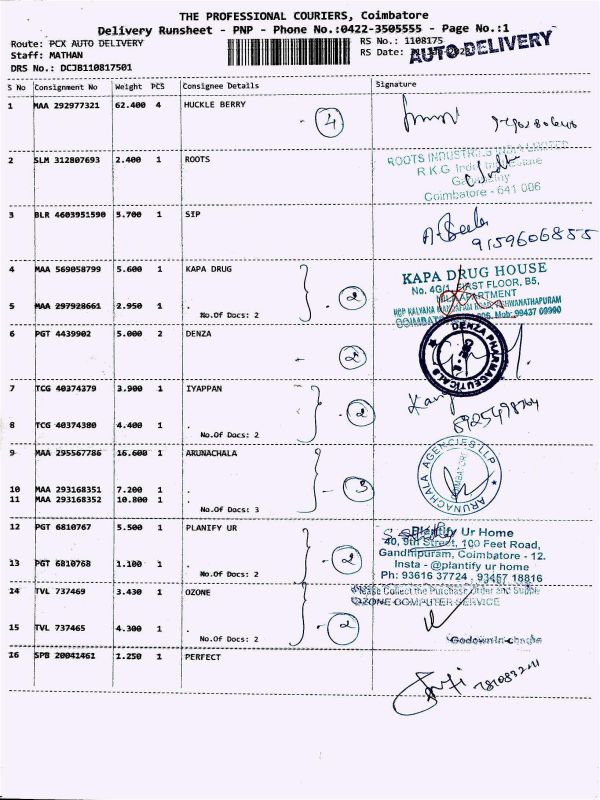 THE PROFESSIONAL COURIERS, Coimbatore
Delivery Runsheet - PNP - Phone No.:0422-3505555 - Page No.:1
Route: PCX AUTO DELIVERY
RS No.: 1108175
Staff: MATHAN
RS Date:
AUTO DELIVERY
DRS No.: DCJB110817501
S No Consignment No Weight PCS Consignee Details Signature
1 MAA 292977321 62.400 4 HUCKLE BERRY
- 4
2 SLM 312807693 2.400 1 ROOTS
ROOTS INDUSTRIES INDIA LIMITED
R.K.G. Industrial Estate
Ganapathy
Coimbatore - 641 006
3 BLR 4603951590 5.700 1 SIP
9159606855
4 MAA 569058799 5.600 1 KAPA DRUG
- 2
KAPA DRUG HOUSE
No. 4G/1, FIRST FLOOR, B5,
APARTMENT
5 MAA 297928661 2.950 1 .
No.Of Docs: 2
Mob: 99437 09990
6 PGT 4439902 5.000 2 DENZA
- 2
DENZA PHARMACEUTICALS
7 TCG 40374379 3.900 1 IYAPPAN
- 2
8 TCG 40374380 4.400 1 .
No.Of Docs: 2
9 MAA 295567786 16.600 1 ARUNACHALA
ARUNACHALA AGENCIES LLP
COIMBATORE
10 MAA 293168351 7.200 1 .
- 3
11 MAA 293168352 10.800 1 .
No.Of Docs: 3
12 PGT 6810767 5.500 1 PLANIFY UR
- 2
Plantify Ur Home
40, 9th Street, 100 Feet Road,
Gandhipuram, Coimbatore - 12.
Insta - @plantify ur home
Ph: 93616 37724, 93457 18816
13 PGT 6810768 1.100 1 .
No.Of Docs: 2
14 TVL 737469 3.430 1 OZONE
Please Collect the Purchase Order and Supply
OZONE COMPUTER SERVICE
- 2
15 TVL 737465 4.300 1 .
No.Of Docs: 2
Godown In-charge
16 SPB 20041461 1.250 1 PERFECT